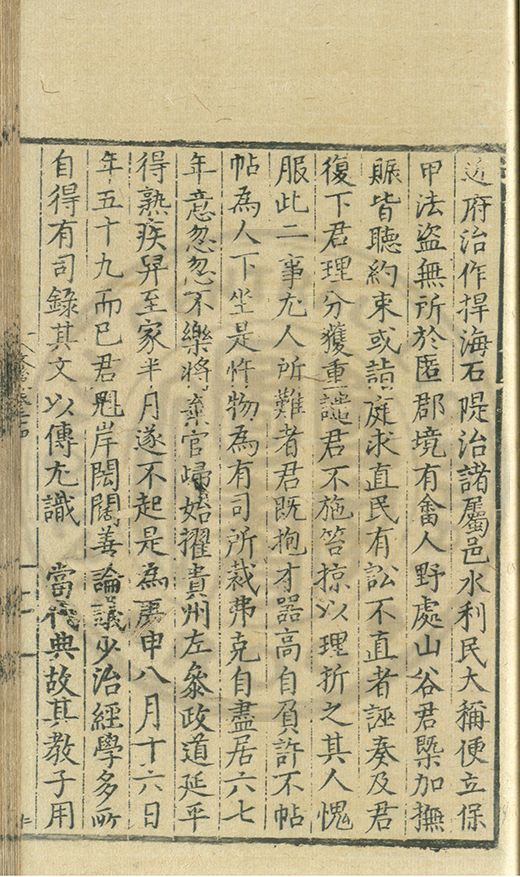 近府治作捍海石隄治諸屬邑水利民大稱便立保
甲法盜無所於匿郡境有畬人野處山谷君槩加撫
賑皆聽約束或詣庭求直民有訟不直者誣奏及君
復下君理分獲重譴君不施笞掠以理折之其人愧
服此二事尤人所難者君既抱才器高自負許不帖
帖為人下坐是忤物為有司所裁弗克自盡居六七
年意忽忽不樂將棄官歸始擢貴州左叅政道延平
得熱疾舁至家半月遂不起是為庚申八月十六日
年五十九而已君魁岸闊闊善論議少治經學多所
自得有司錄其文以傳尤識 當代典故其教子用